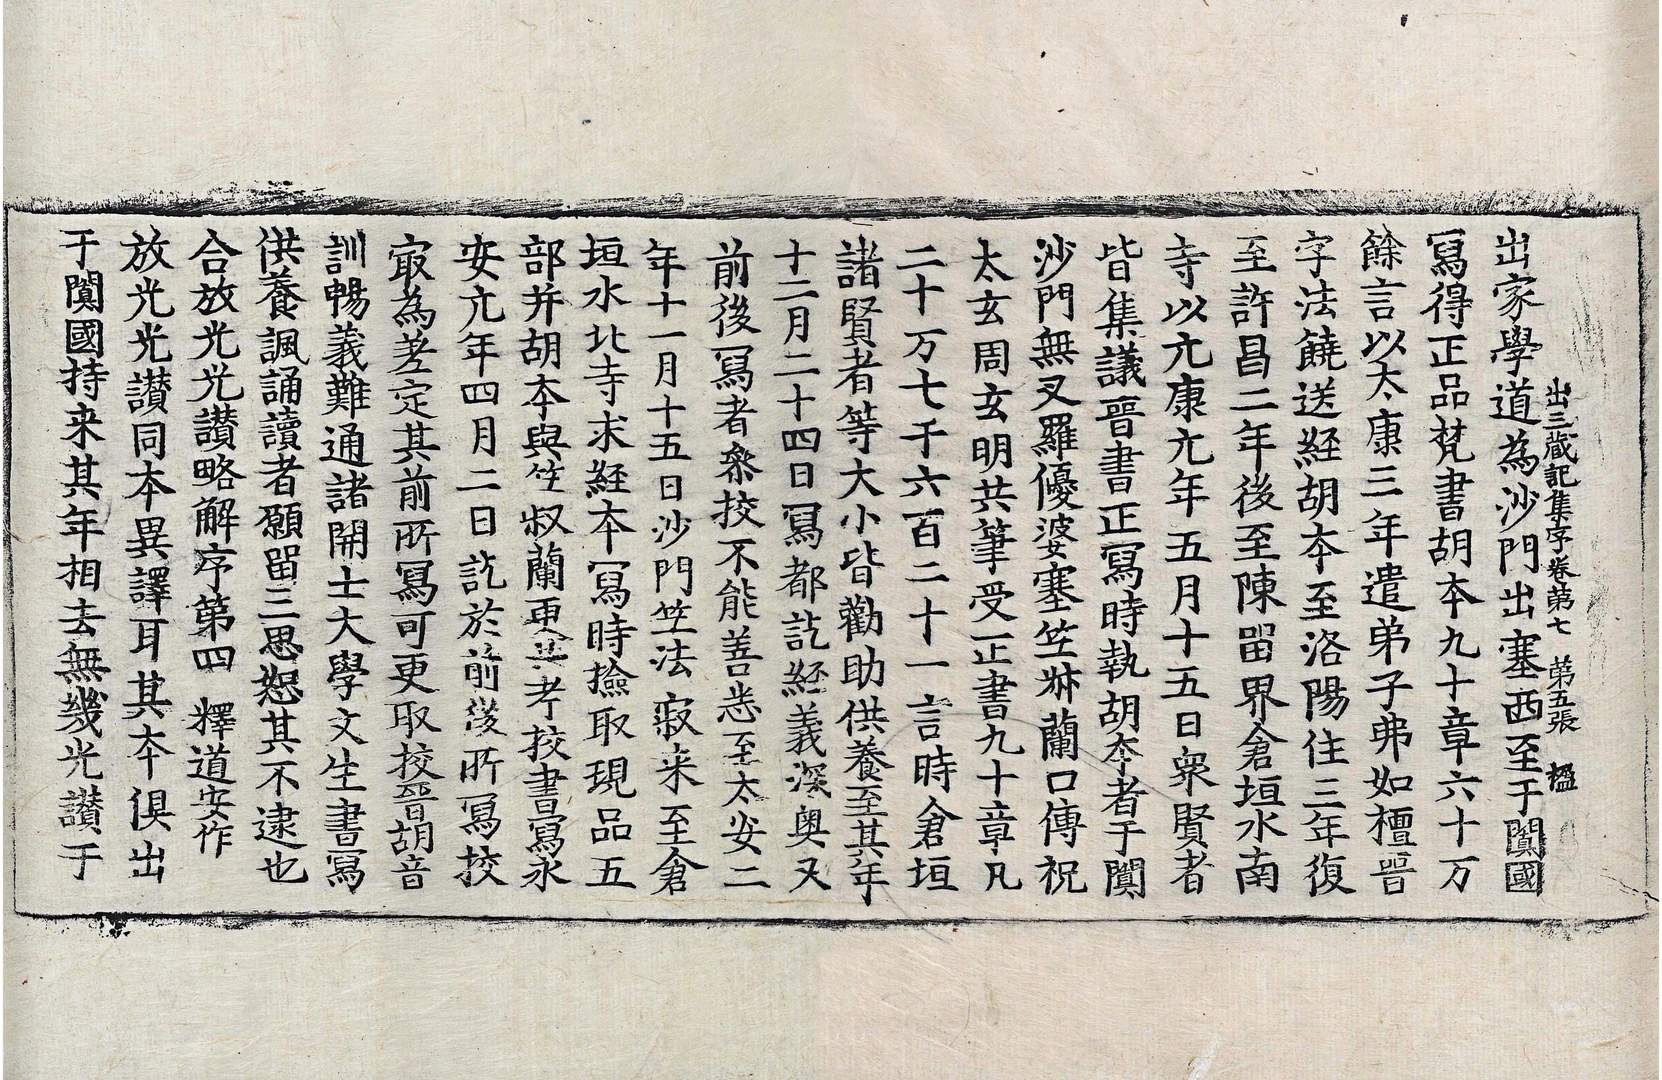 出三蔵記集序卷第七 第五張 楹
出家學道為沙門出塞西至于闐國
寫得正品梵書胡本九十章六十万
餘言以太康三年遣弟子弗如檀晉
字法饒送經胡本至洛陽住三年復
至許昌二年後至陳留界倉垣水南
寺以元康元年五月十五日衆賢者
皆集議晉書正寫時執胡本者于闐
沙門無叉羅優婆塞竺𣂀蘭口傳祝
太玄周玄明共筆受正書九十章凡
二十万七千六百二十一言時倉垣
諸賢者等大小皆勸助供養至其年
十二月二十四日寫都訖經義深奥又
前後寫者叅挍不能善悉至太安二
年十一月十五日沙門竺法寂来至倉
垣水北寺求經本寫時撿取現品五
部并胡本與竺叔蘭更共考挍書寫永
安元年四月二日訖於前後所寫挍
㝡為差定其前所寫可更取挍晉胡音
訓暢義難通諸開士大學文生書寫
供養諷誦讀者願留三思恕其不逮也
合放光光讃略解序第四 釋道安作
放光光讃同本異譯耳其本俱出
于闐國持来其年相去無幾光讃于